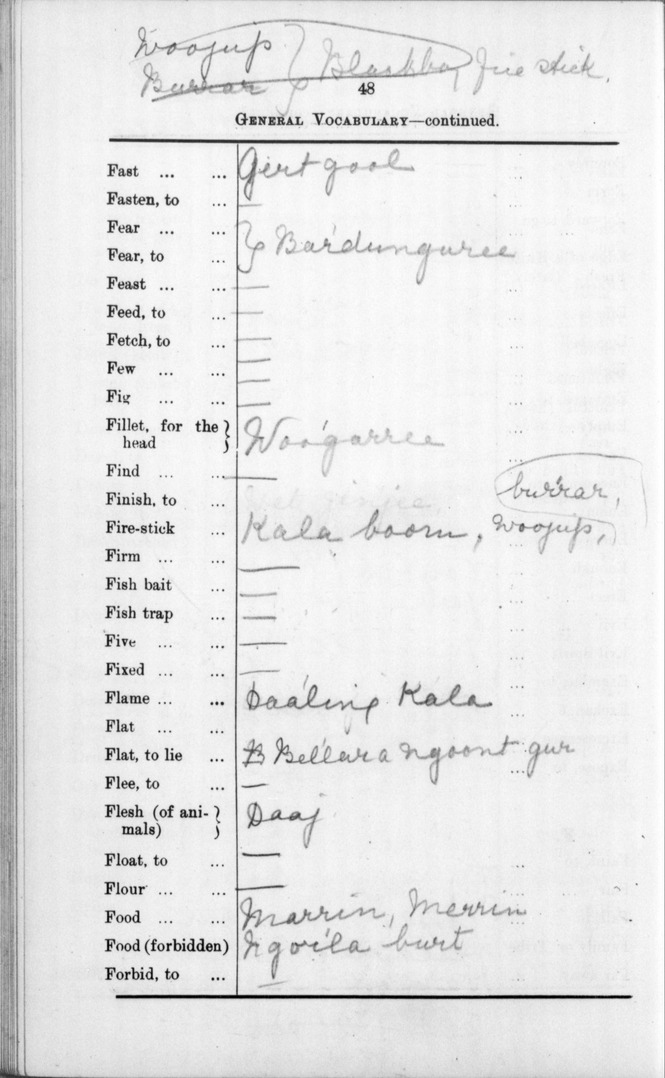 Woojup } Blackboy fire stick.
Burrar
48
GENERAL VOCABULARY—continued.
Fast ... ... Gert gool
Fasten, to ... —
Fear ... ... } Bar'dunguree
Fear, to ...
Feast ... ... —
Feed, to ... —
Fetch, to ... —
Few ... ... —
Fig ... ... —
Fillet, for the } Woo'garree
head
Find ... ... —
Finish, to ...
burrar,
Fire-stick ... Kala boorn, woojup,
Firm ... ... —
Fish bait ... —
Fish trap ... —
Five ... ... —
Fixed ... ... —
Flame ... ... Daaling Kala
Flat ... ...
Flat, to lie ... B Bellara ngoont gur
Flee, to ... —
Flesh (of ani- } Daaj
mals)
Float, to ... —
Flour ... ... —
Food ... ... Marrin, Merrin
Food (forbidden) Ngoila burt
Forbid, to ... —